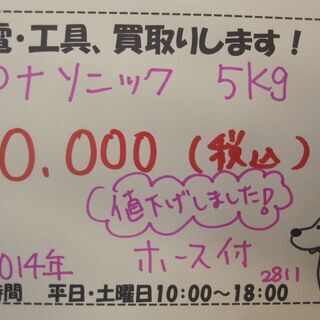 電・工具、買取りします！
ナソニック 5Kg
0.000 (税込)
値下げしました!
014年 ホース付
2811
時間 平日・土曜日10:00～18:00